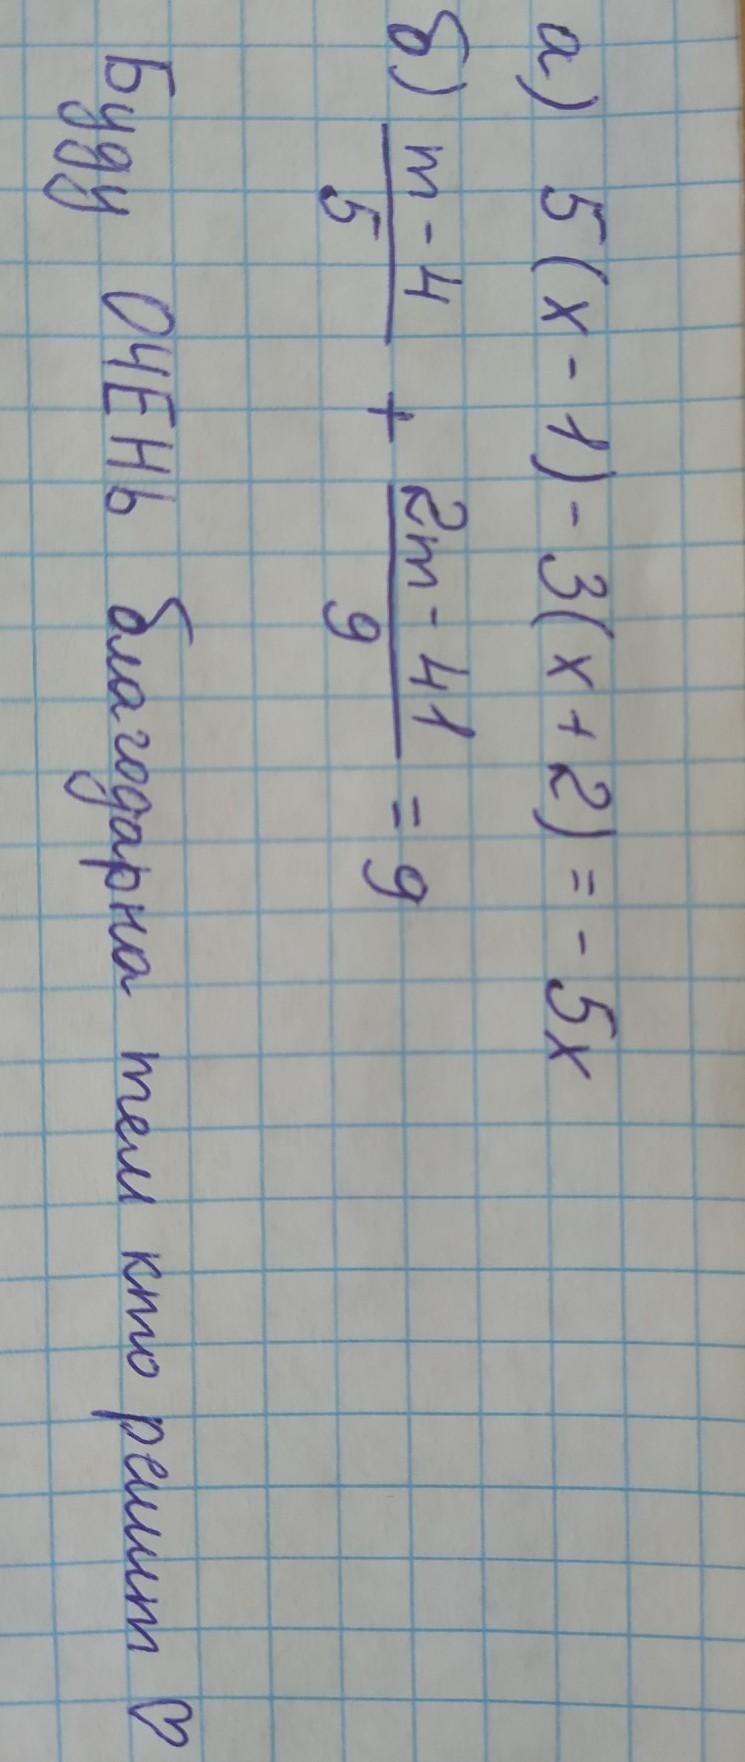 а) 5(x - 1) - 3(x + 2) = - 5x
б) \frac{m - 4}{5} + \frac{2m - 41}{9} = 9
Буду ОЧЕНЬ благодарна тем кто решит ♡